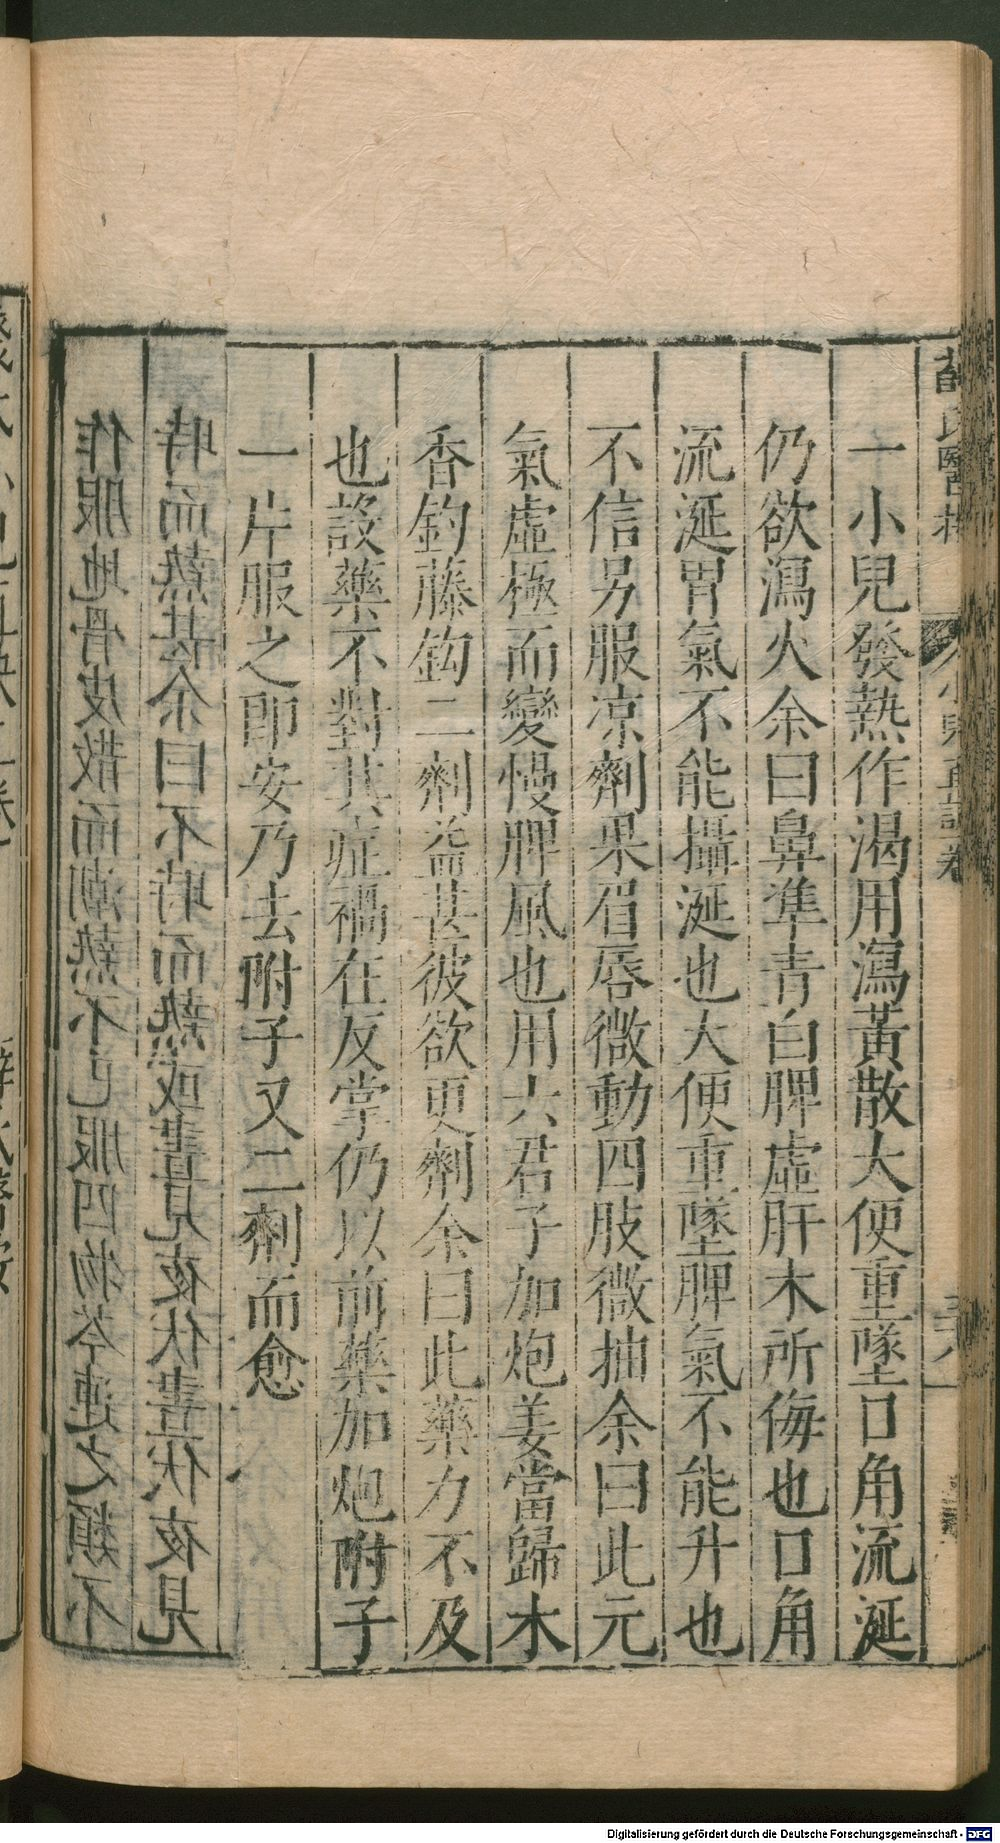 薛氏醫按 小兒直訣卷
一小兒發熱作渴用瀉黃散大便重墜口角流涎
仍欲瀉火余曰鼻準青白脾虛肝木所侮也口角
流涎胃氣不能攝涎也大便重墜脾氣不能升也
不信另服凉劑果眉唇微動四肢微抽余曰此元
氣虛極而變慢脾風也用六君子加炮姜當歸木
香釣藤鈎二劑益甚彼欲更劑余曰此藥力不及
也設藥不對其症禍在反掌仍以前藥加炮附子
一片服之即安乃去附子又二劑而愈
作服地骨皮散而潮熱不已服四物芩連之類不
時而熱其余曰不時而熱或晝見夜伏晝伏夜見
Digitalisierung gefördert durch die Deutsche Forschungsgemeinschaft - DFG